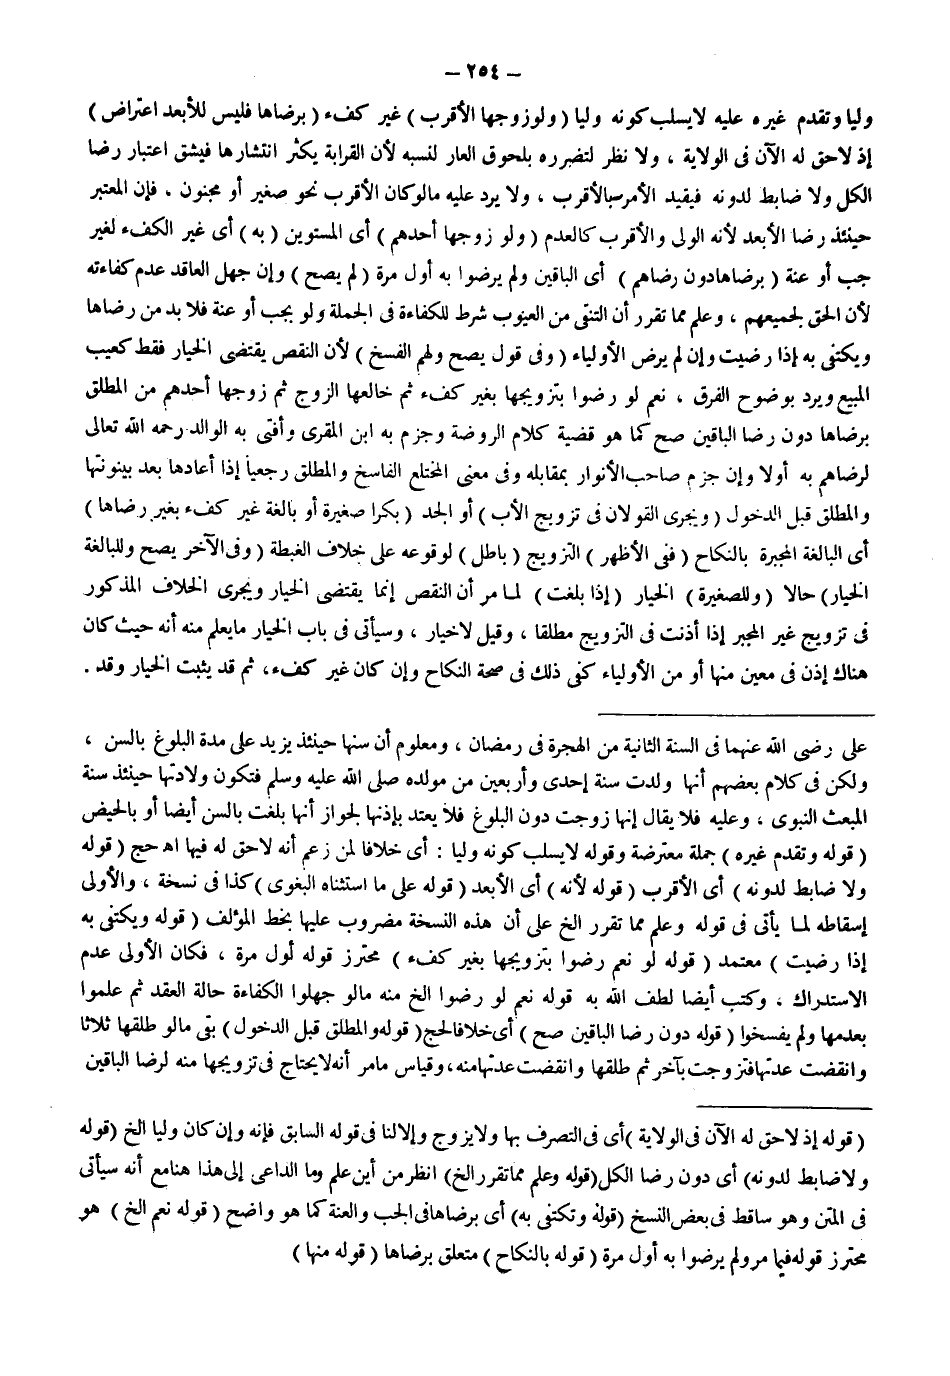 — ٢٥٤ —
وليا وتقدم غيره عليه لايسلب كونه وليا ( ولو زوجها الأقرب ) غير كفء ( برضاها فليس للأبعد اعتراض )
إذ لاحق له الآن فى الولاية ، ولا نظر لتضرره بلحوق العار لنسبه لأن القرابة يكثر انتشارها فيشق اعتبار رضا
الكل ولا ضابط لدونه فيقيد الأمر بالأقرب ، ولا يرد عليه مالوكان الأقرب نحو صغير أو مجنون . فإن المعتبر
حينئذ رضا الأبعد لأنه الولى والأقرب كالعدم ( ولو زوجها أحدهم ) أى المستوين ( به ) أى غير الكفء لغير
جب أو عنة ( برضاها دون رضاهم ) أى الباقين ولم يرضوا به أول مرة ( لم يصح ) وإن جهل العاقد عدم كفاءته
لأن الحق لجميعهم ، وعلم مما تقرر أن التنقى من العيوب شرط للكفاءة فى الجملة ولو بجب أو عنة فلا بد من رضاها
ويكتفى به إذا رضيت وإن لم يرض الأولياء ( وفى قول يصح ولهم الفسخ ) لأن النقص يقتضى الخيار فقط كعيب
المبيع ويرد بوضوح الفرق ، نعم لو رضوا بتزويجها بغير كفء ثم خالعها الزوج ثم زوجها أحدهم من المطلق
برضاها دون رضا الباقين صح كما هو قضية كلام الروضة وجزم به ابن المقرى وأفتى به الوالد رحمه الله تعالى
لرضاهم به أولا وإن جزم صاحب الأنوار بمقابله وفى معنى المختلع الفاسخ والمطلق رجعيا إذا أعادها بعد بينونتها
والمطلق قبل الدخول ( ويجرى القولان فى تزويج الأب ) أو الجد ( بكرا صغيرة أو بالغة غير كفء بغير رضاها )
أى البالغة المجبرة بالنكاح ( ففى الأظهر ) التزويج ( باطل ) لوقوعه على خلاف الغبطة ( وفى الآخر يصح وللبالغة
الخيار ) حالا ( وللصغيرة ) الخيار ( إذا بلغت ) لما مر أن النقص إنما يقتضى الخيار ويجرى الخلاف المذكور
فى تزويج غير المجبر إذا أذنت فى التزويج مطلقا ، وقيل لاخيار ، وسيأتى فى باب الخيار مايعلم منه أنه حيث كان
هناك إذن فى معين منها أو من الأولياء كفى ذلك فى صحة النكاح وإن كان غير كفء، ثم قد يثبت الخيار وقد .
على رضى الله عنهما فى السنة الثانية من الهجرة فى رمضان ، ومعلوم أن سنها حينئذ يزيد على مدة البلوغ بالسن ،
ولكن فى كلام بعضهم أنها ولدت سنة إحدى وأربعين من مولده صلى الله عليه وسلم فتكون ولادتها حينئذ سنة
المبعث النبوى ، وعليه فلا يقال إنها زوجت دون البلوغ فلا يعتد بإذنها لجواز أنها بلغت بالسن أيضا أو بالحيض
( قوله وتقدم غيره ) جملة معترضة وقوله لايسلب كونه وليا : أى خلافا لمن زعم أنه لاحق له فيها اه حج ( قوله
ولا ضابط لدونه ) أى الأقرب ( قوله لأنه ) أى الأبعد ( قوله على ما استثناه البغوى ) كذا فى نسخة ، والأولى
إسقاطه لما يأتى فى قوله وعلم مما تقرر الخ على أن هذه النسخة مضروب عليها بخط المؤلف ( قوله ويكتفى به
إذا رضيت ) معتمد ( قوله لو نعم رضوا بتزويجها بغير كفء ) محترز قوله أول مرة ، فكان الأولى عدم
الاستدراك ، وكتب أيضا لطف الله به قوله نعم لو رضوا الخ منه مالو جهلوا الكفاءة حالة العقد ثم علموا
بعدمها ولم يفسخوا ( قوله دون رضا الباقين صح ) أى خلافا لحج ( قوله والمطلق قبل الدخول ) بقى مالو طلقها ثلاثا
وانقضت عدتها فتزوجت بآخر ثم طلقها وانقضت عدتها منه ، وقياس مامر أنه لايحتاج فى تزويجها منه لرضا الباقين
( قوله إذ لاحق له الآن فى الولاية ) أى فى التصرف بها ولايزوج وإلا لنا فى قوله السابق فإنه وإن كان وليا الخ ( قوله
ولاضابط لدونه ) أى دون رضا الكل ( قوله وعلم مما تقرر الخ ) انظر من أين علم وما الداعى إلى هذا هنا مع أنه سيأتى
فى المتن وهو ساقط فى بعض النسخ ( قوله وتكتفى به ) أى برضاها فى الجب والعنة كما هو واضح ( قوله نعم الخ ) هو
محترز قوله فيما مر ولم يرضوا به أول مرة ( قوله بالنكاح ) متعلق برضاها ( قوله منها )